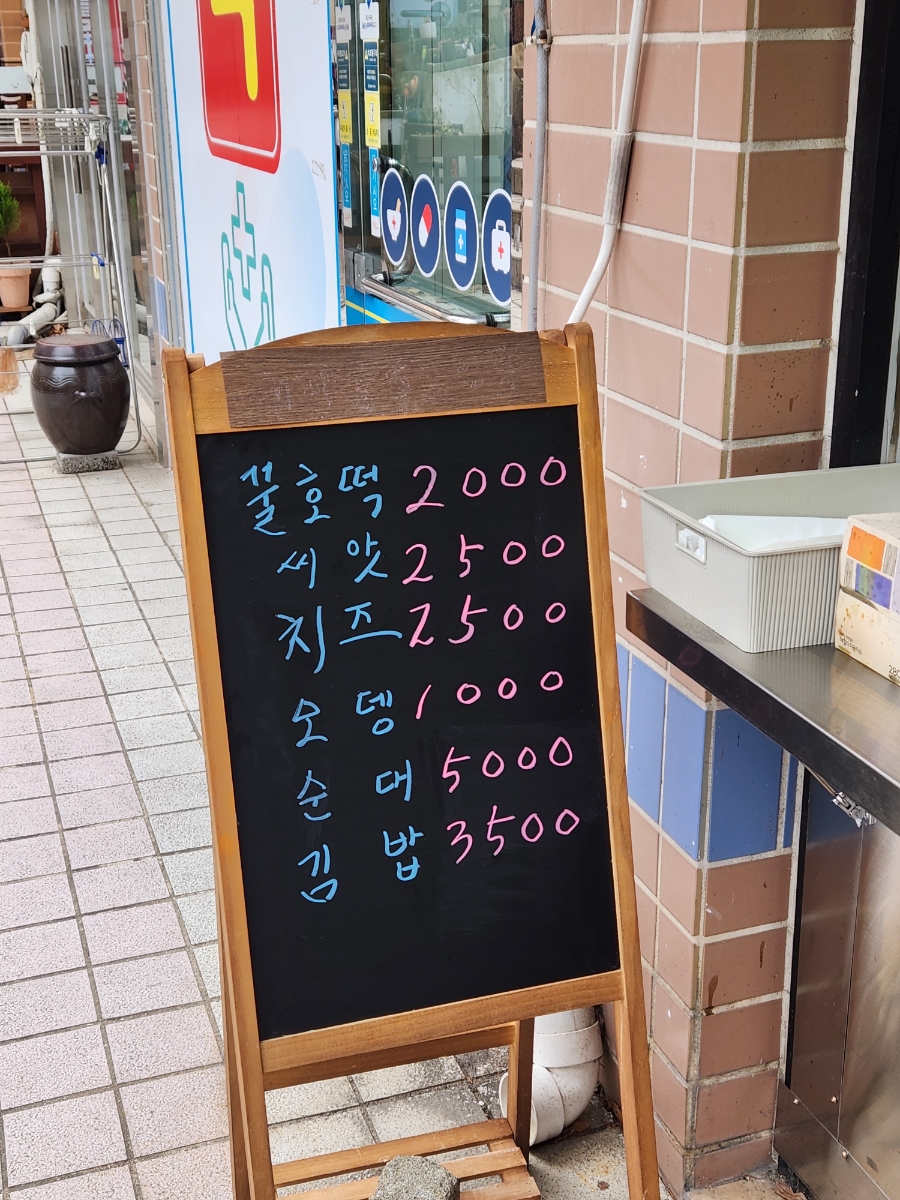 꿀호떡 2000
씨앗 2500
치즈 2500
오뎅 1000
순대 5000
김밥 3500